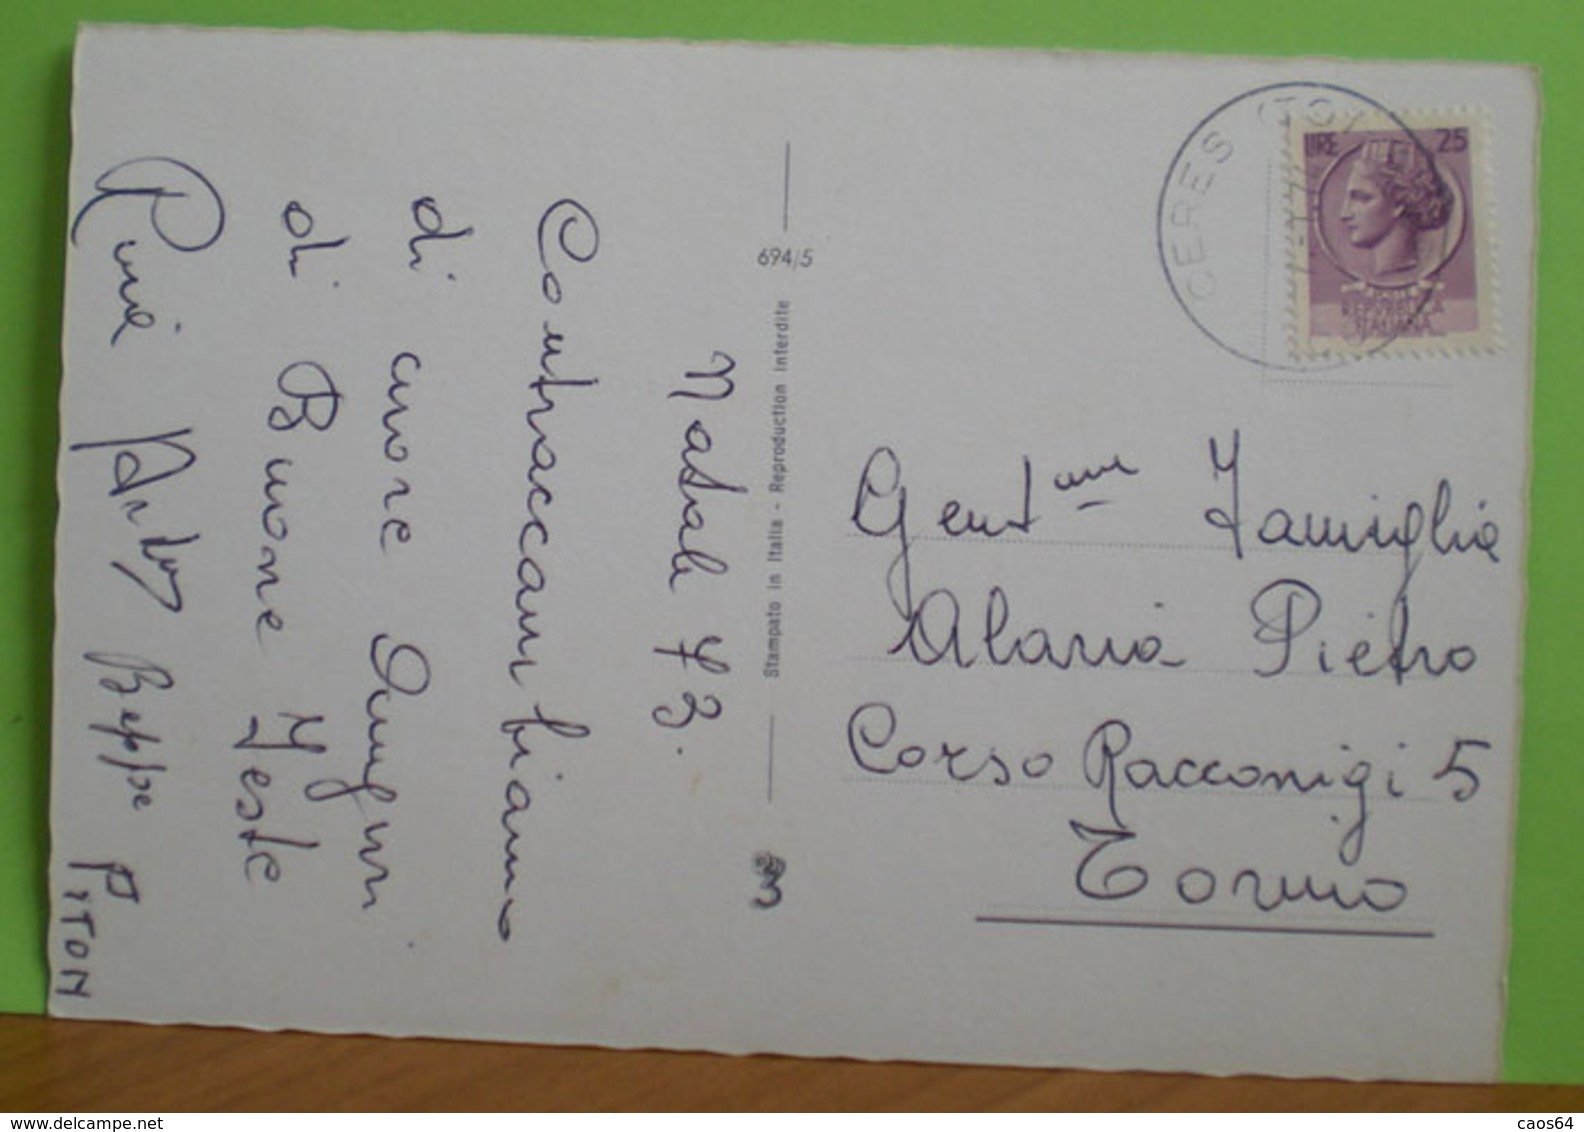 Natale 73.
Contraccambiamo
di cuore Auguri
di Buone Feste
Beppe PITON
694/5
Stampato in Italia - Reproduction interdite
CERES (TO)
LIRE 25
REPUBBLICA
ITALIANA
Gent.me Famiglia
Alaria Pietro
Corso Racconigi 5
Torino
www.delcampe.net
caos64